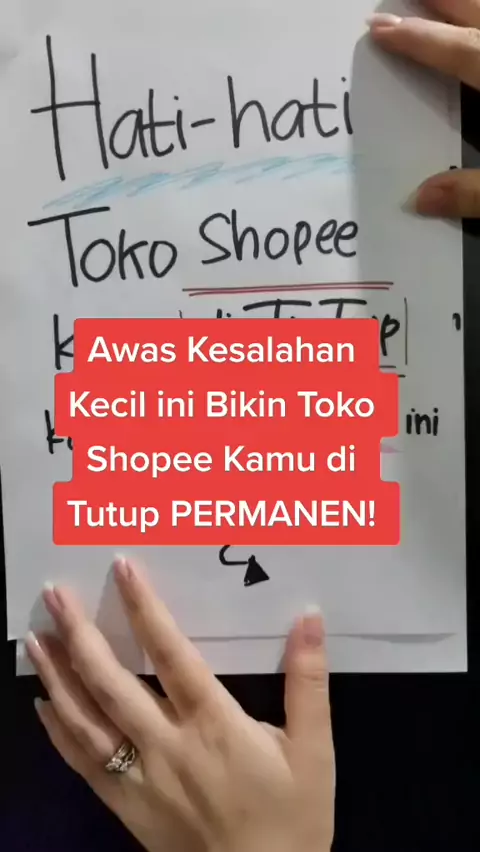 Hati-hati
Toko Shopee
Awas Kesalahan
Kecil ini Bikin Toko
Shopee Kamu di
Tutup PERMANEN!
ini